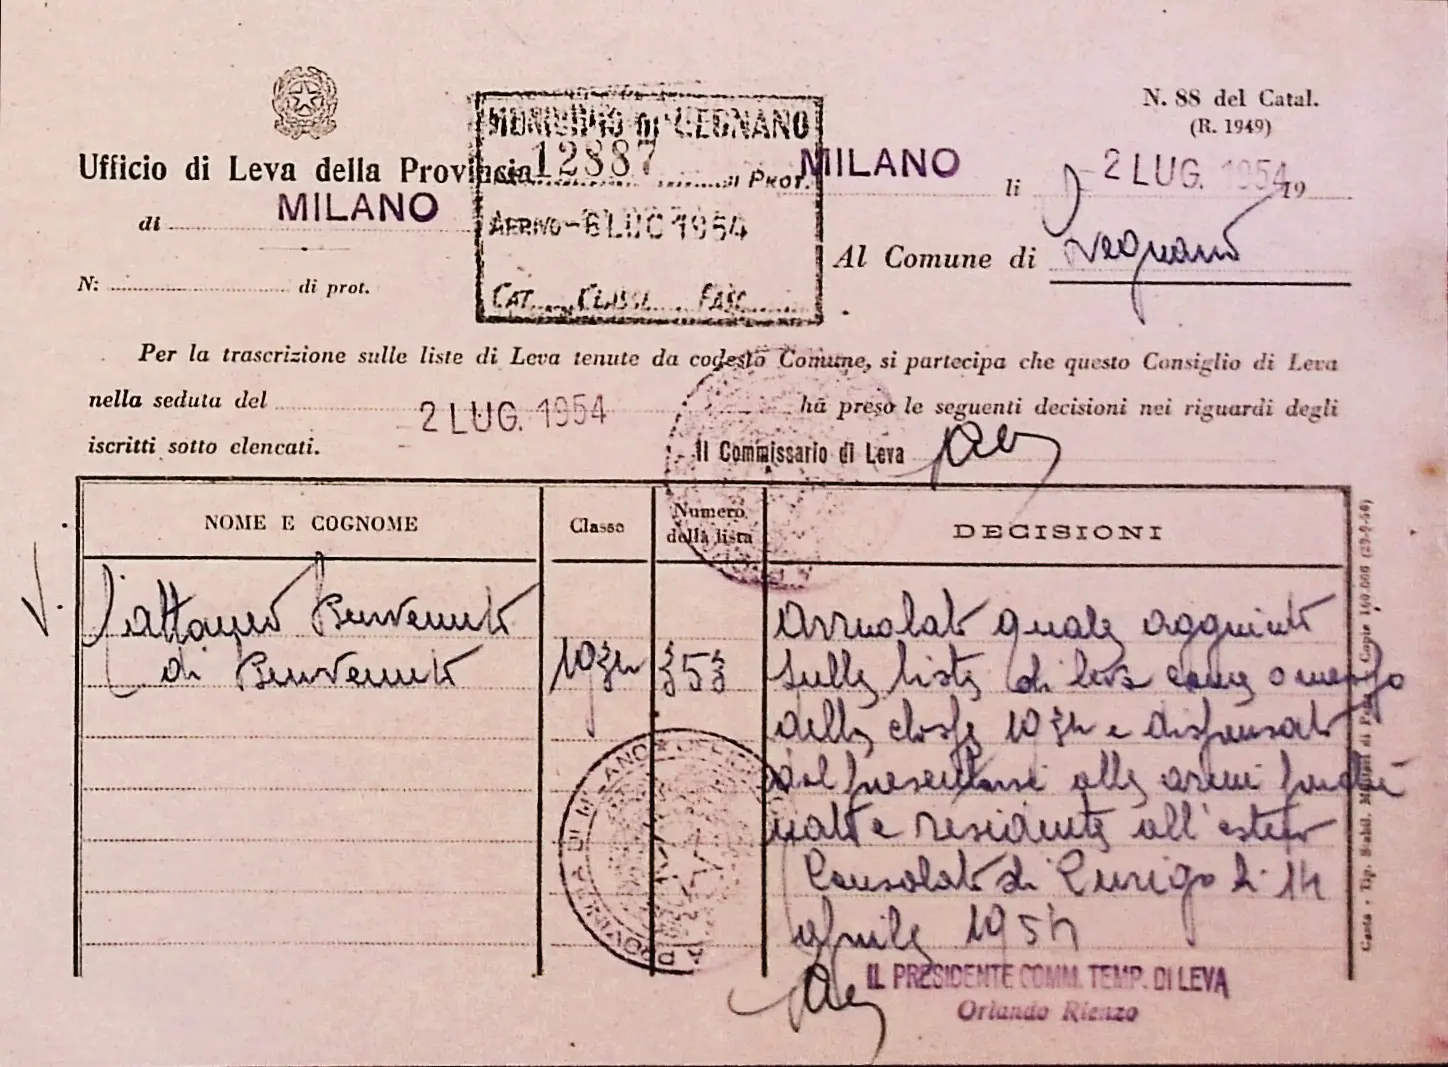 N. 88 del Catal.
(R. 1949)
MUNICIPIO DI LEGNANO
12887
N. Prot.
ARRIVO - 6 LUG 1954
CAT. CLASSE FASC.
Ufficio di Leva della Provincia
di MILANO
N: di prot.
MILANO li 2 LUG. 1954 19
Al Comune di Legnano
Per la trascrizione sulle liste di Leva tenute da codesto Comune, si partecipa che questo Consiglio di Leva
nella seduta del 2 LUG. 1954 ha preso le seguenti decisioni nei riguardi degli
iscritti sotto elencati.
Il Commissario di Leva
NOME E COGNOME
Classe
Numero
della lista
DECISIONI
Cattaneo Benvenuto
di Benvenuto
1934
353
Arruolato quale aggiunto
sulla lista di leva come omesso
della classe 1934 e dispensato
dal presentarsi alle armi perchè
nato e residente all'estero
Consolato di Zurigo li 14
aprile 1954
IL PRESIDENTE COMM. TEMP. DI LEVA
Orlando Rienzo
PROVINCIA DI MILANO